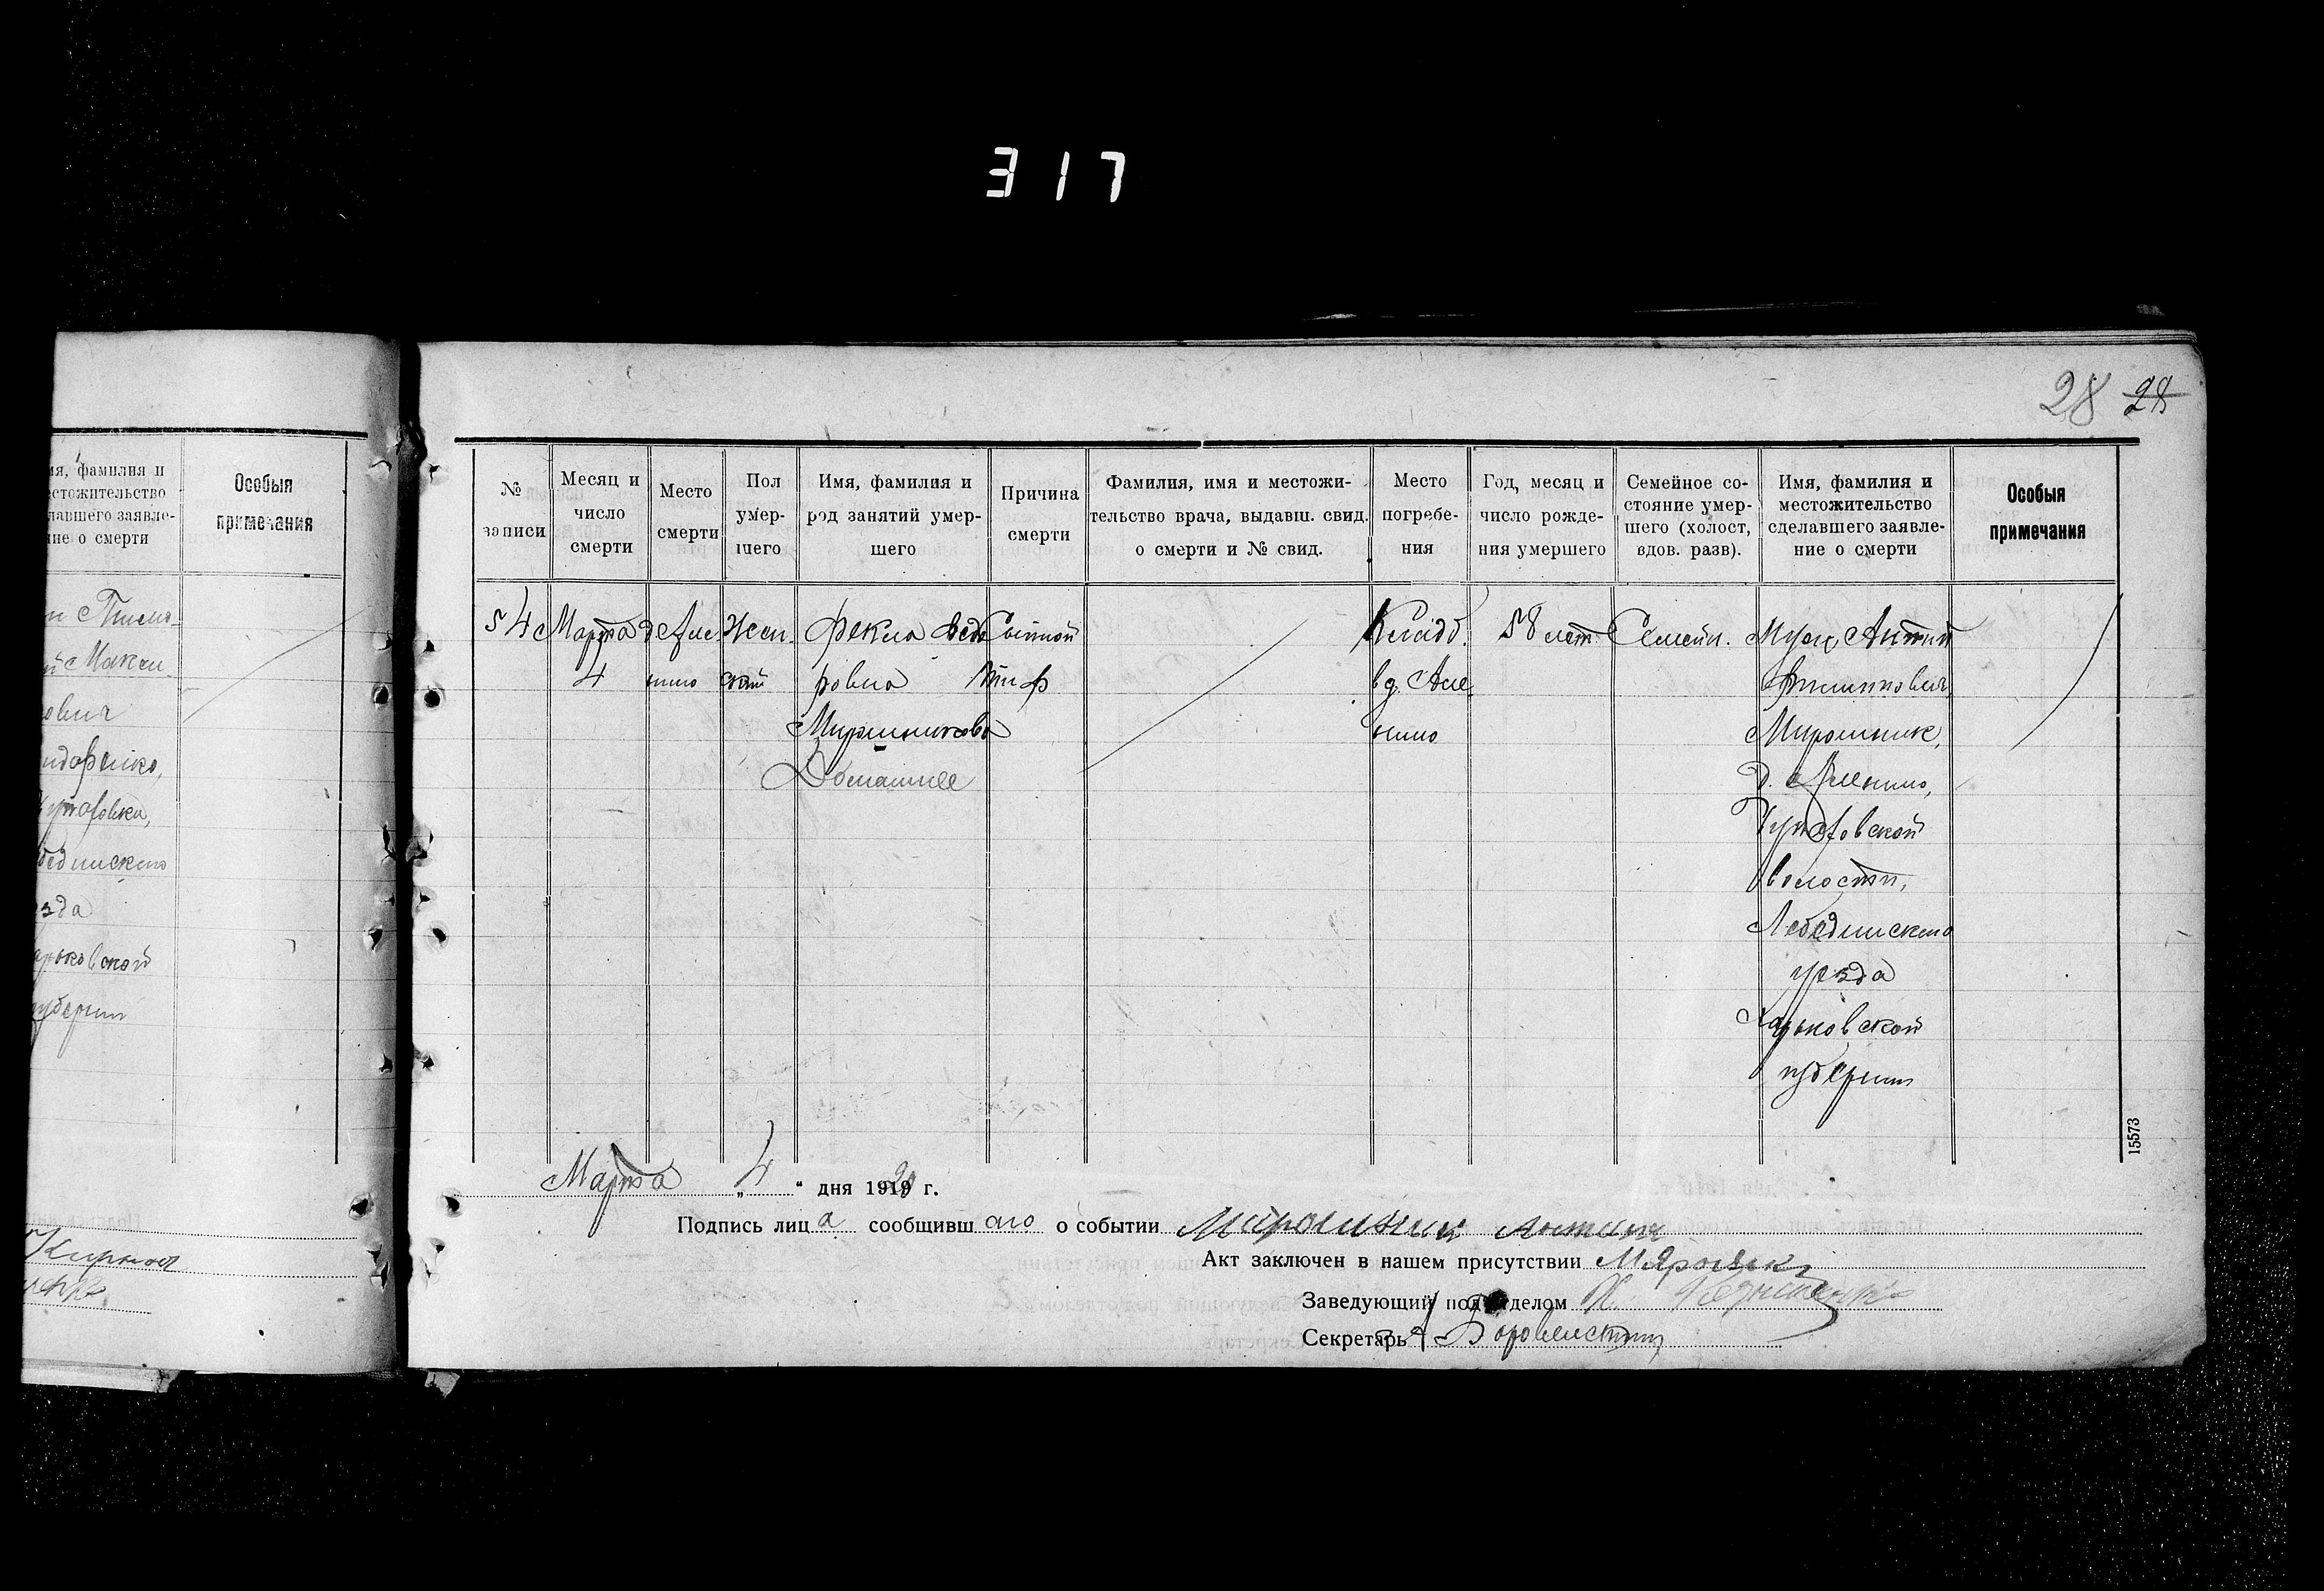 317
28 28
мя, фамилия и
естожительство
лавшего заявле-
ние о смерти
Особыя
примечания
Макси
ович
идоренко,
зда
арьковской
губернии
№
записи
Месяц и
число
смерти
Место
смерти
Пол
умер-
шего
Имя, фамилия и
род занятий умер-
шего
Причина
смерти
Фамилия, имя и местожи-
тельство врача, выдавш. свид.
о смерти и № свид.
Место
погребе-
ния
Год, месяц и
число рожде-
ния умершего
Семейное со-
стояние умер-
шего (холост,
вдов. разв).
Имя, фамилия и
местожительство
сделавшего заявле-
ние о смерти
Особыя
примечания
54
Марта
4
Жен.
ский
Фекла Федо
ровна
Мирошникова
Домашнее
Сыпной
тиф
Кладб.
в д. Але
58 лет
Семейн.
Муж, Антип
Мирошник,
волости,
Лебединского
уезда
Харьковской
губернии
15573
Марта „ 4 “ дня 1920 г.
Подпись лица сообщившаго о событии Мирошник Антип
Акт заключен в нашем присутствии
Заведующий подотделом
Секретарь